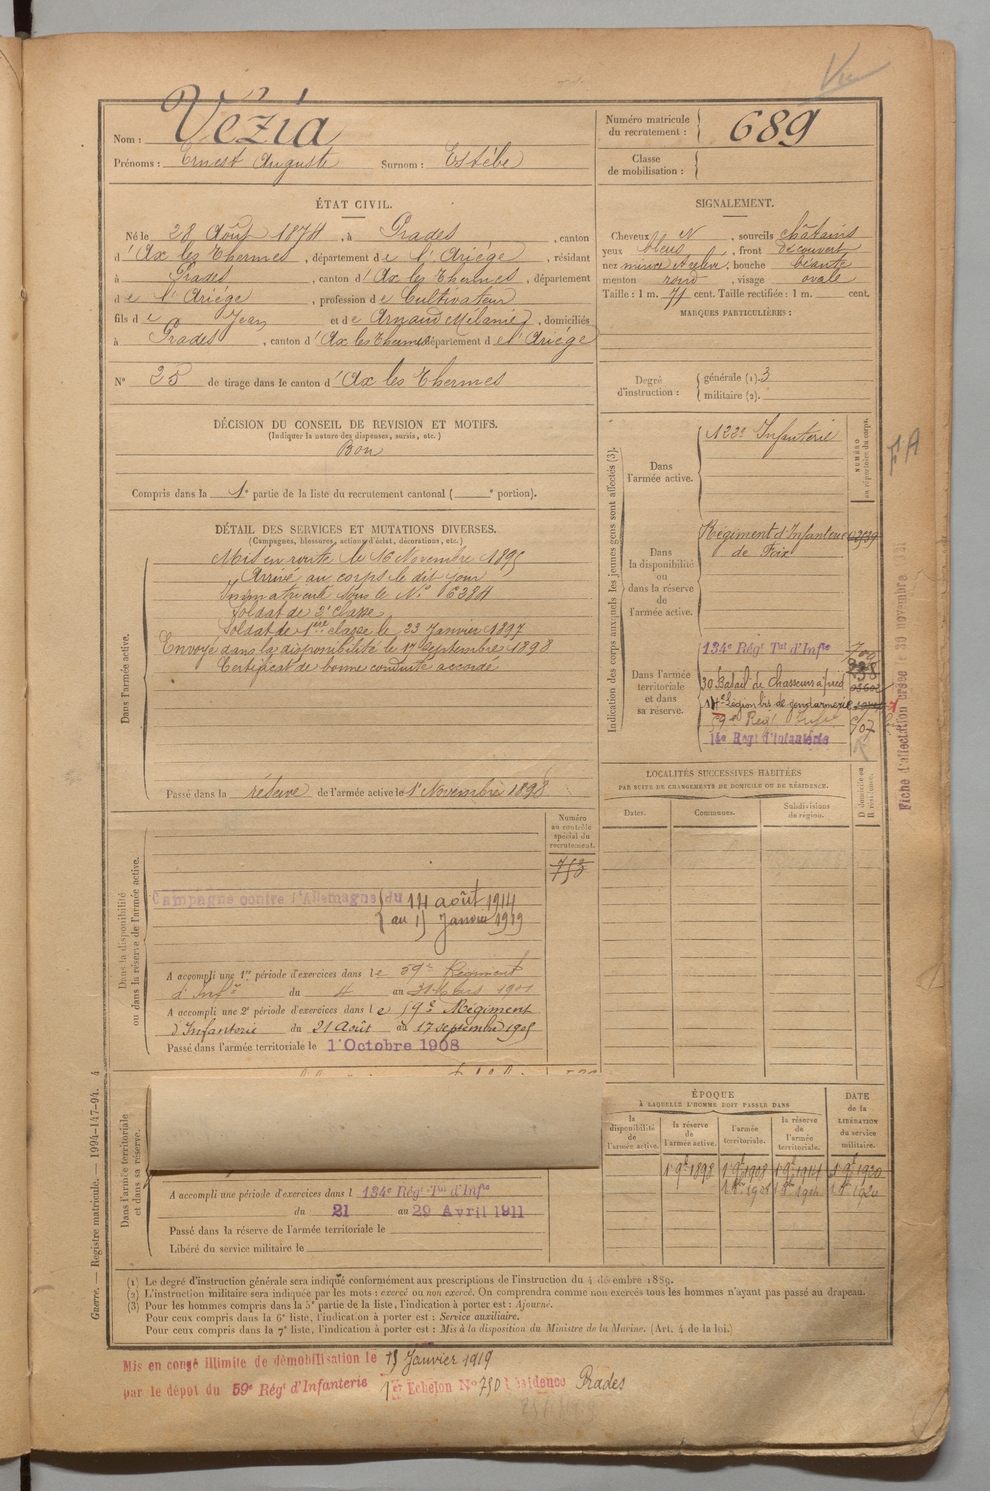 Vu
Nom : Vézia
Prénoms : Ernest Auguste Surnom : Estèbe
Numéro matricule du recrutement : 689
Classe de mobilisation :
ÉTAT CIVIL.
Né le 28 Août 1874, à Prades, canton
d'Ax les Thermes, département de l'Ariége, résidant
à Prades, canton d'Ax les Thermes, département
de l'Ariége, profession de Cultivateur
fils de Jean et de Arnaud Mélanie, domiciliés
à Prades, canton d'Ax les Thermes département de l'Ariége
N° 25 de tirage dans le canton d'Ax les Thermes
SIGNALEMENT.
Cheveux N, sourcils châtains
yeux bleus, front découvert
nez mince et relev., bouche béante
menton rond, visage ovale
Taille : 1 m. 71 cent. Taille rectifiée : 1 m. cent.
MARQUES PARTICULIÈRES :
Degré d'instruction : générale (1). 3
militaire (2).
DÉCISION DU CONSEIL DE REVISION ET MOTIFS.
(Indiquer la nature des dispenses, sursis, etc.)
Bon
Compris dans la 1e partie de la liste du recrutement cantonal ( e portion).
DÉTAIL DES SERVICES ET MUTATIONS DIVERSES.
(Campagnes, blessures, actions d'éclat, décorations, etc.)
Dans l'armée active.
Mis en route le 16 Novembre 1895
Arrivé au corps le dit jour
Immatriculé sous le N° 6384
Soldat de 2e classe
Soldat de 1ère classe le 23 Janvier 1897
Envoyé dans la disponibilité le 17 Septembre 1898
Certificat de bonne conduite accordé
Passé dans la réserve de l'armée active le 1er Novembre 1898
Indication des corps auxquels les jeunes gens sont affectés (3).
NUMÉRO au répertoire du corps.
Dans l'armée active.
122e Infanterie
Dans la disponibilité ou dans la réserve de l'armée active.
Régiment d'Infanterie
de Foix
Dans l'armée territoriale et dans sa réserve.
134e Régt Tal d'Infie
30 Batail de Chasseurs à pied
14e Légion bis de gendarmerie
59e Régt Infie
14e Regt d'Infanterie
FA
Fiche d'affectation
le 30 novembre
LOCALITÉS SUCCESSIVES HABITÉES
PAR SUITE DE CHANGEMENTS DE DOMICILE OU DE RÉSIDENCE.
Dates.
Communes.
Subdivisions de région.
D domicile ou R résidence.
Dans la disponibilité ou dans la réserve de l'armée active.
Numéro au contrôle spécial du recrutement.
750
Campagne contre l'Allemagne du 14 août 1914
au 15 Janvier 1919
A accompli une 1re période d'exercices dans le 59e Régiment
d'Infie du 4 au 31 Mars 1901
A accompli une 2e période d'exercices dans le 59e Régiment
d'Infanterie du 21 Août au 17 septembre 1905
Passé dans l'armée territoriale le 1er Octobre 1908
Dans l'armée territoriale et dans sa réserve.
A accompli une période d'exercices dans l 134e Régt Tal d'Infie
du 21 au 29 Avril 1911
Passé dans la réserve de l'armée territoriale le
Libéré du service militaire le
ÉPOQUE
À LAQUELLE L'HOMME DOIT PASSER DANS
la disponibilité de l'armée active.
la réserve de l'armée active.
l'armée territoriale.
la réserve de l'armée territoriale.
DATE de la LIBÉRATION du service militaire.
1er 9bre 1898 1er 9bre 1908 1er 9bre 1914 1er 9bre 1920
Guerre. — Registre matricule. — 1994-147-94. 4
(1) Le degré d'instruction générale sera indiqué conformément aux prescriptions de l'instruction du 4 décembre 1889.
(2) L'instruction militaire sera indiquée par les mots : exercé ou non exercé. On comprendra comme non exercés tous les hommes n'ayant pas passé au drapeau.
(3) Pour les hommes compris dans la 5e partie de la liste, l'indication à porter est : Ajourné.
Pour ceux compris dans la 6e liste, l'indication à porter est : Service auxiliaire.
Pour ceux compris dans la 7e liste, l'indication à porter est : Mis à la disposition du Ministre de la Marine. (Art. 4 de la loi.)
Mis en congé illimité de démobilisation le 15 Janvier 1919
par le dépôt du 59e Régt d'Infanterie 1er Echelon N° 750 Résidence Prades